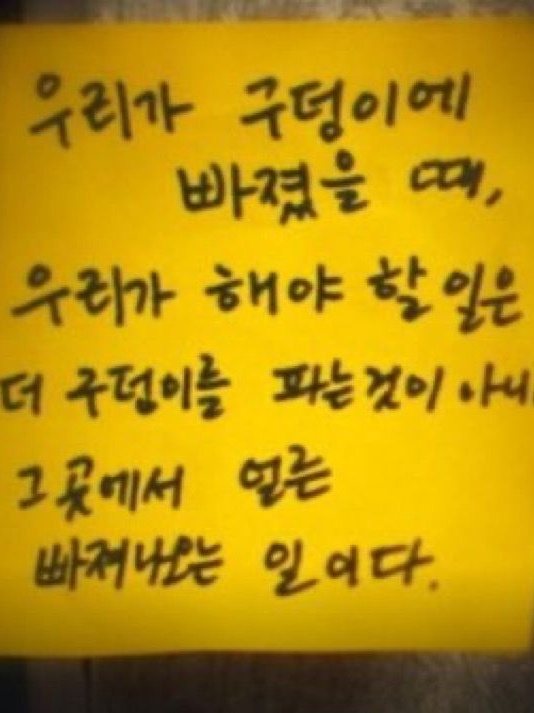 우리가 구덩이에
빠졌을 때,
우리가 해야 할 일은
더 구덩이를 파는것이 아니
그 곳에서 얼른
빠져나오는 일이다.